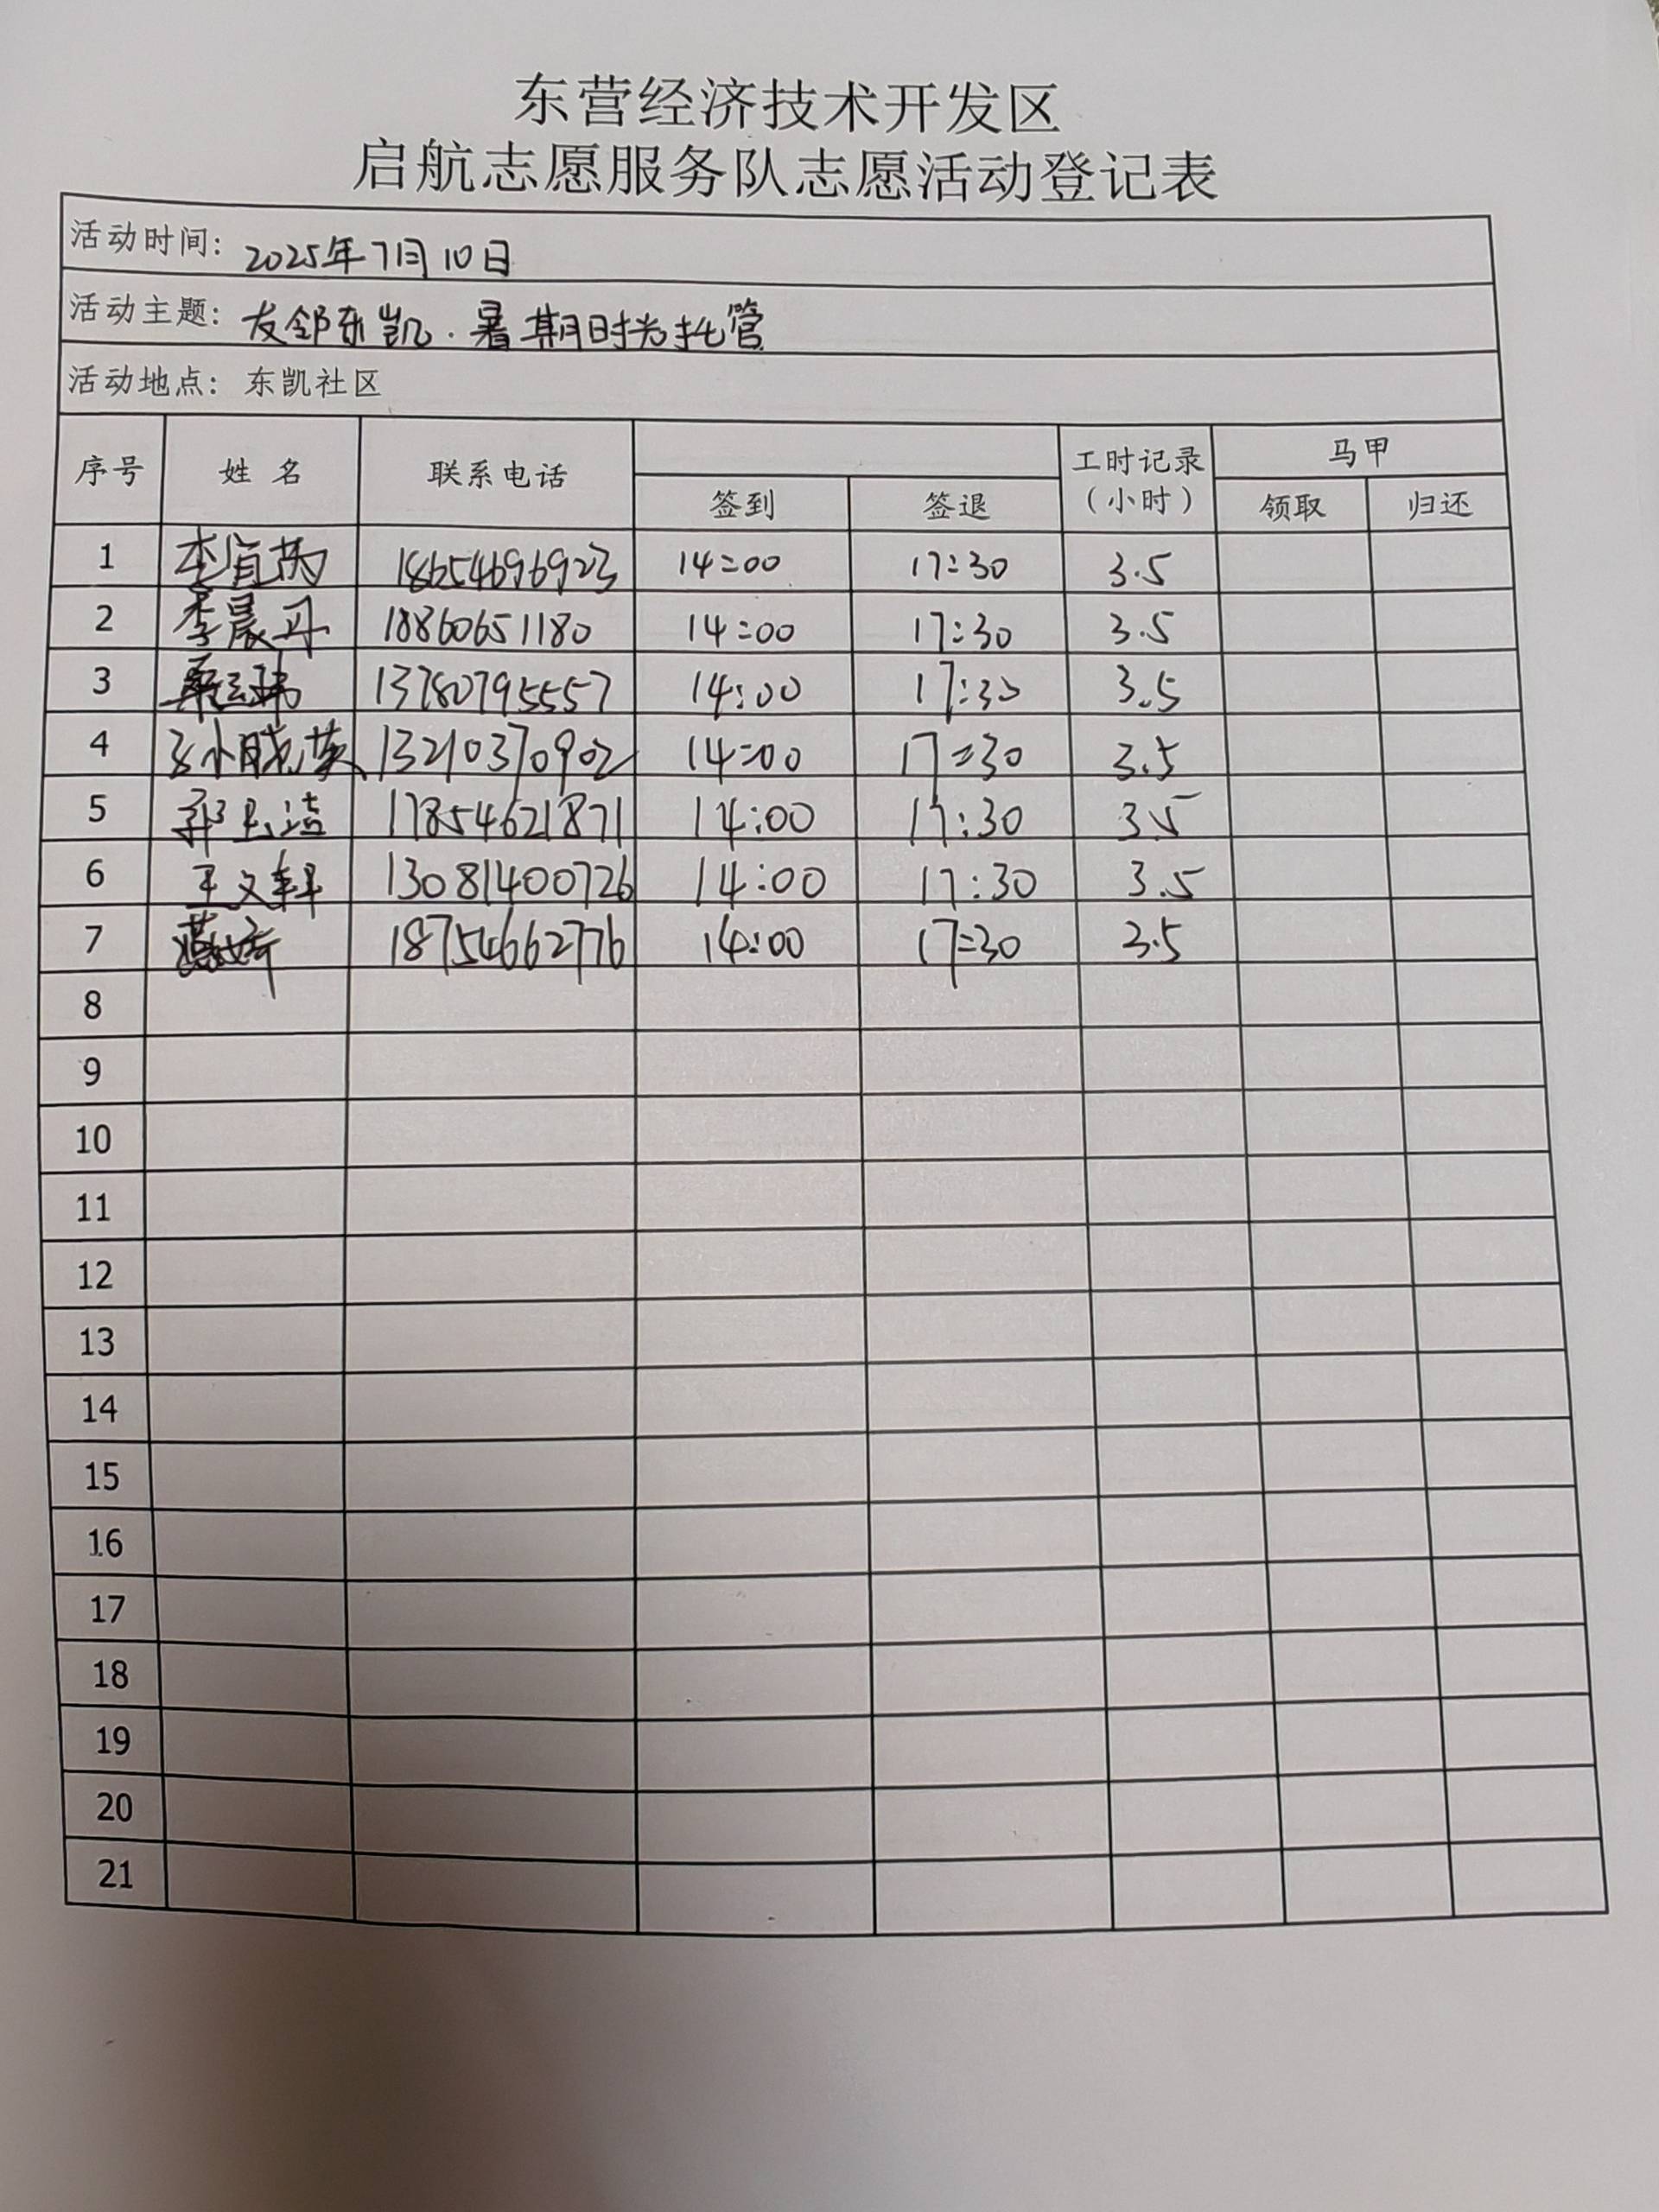 东营经济技术开发区
启航志愿服务队志愿活动登记表
活动时间: 2025年7月10日
活动主题: 友邻东凯·暑期时光托管
活动地点: 东凯社区
序号 姓 名 联系电话 工时记录（小时） 马甲
签到 签退 领取 归还
1 李 18654696923 14:00 17:30 3.5
2 李晨丹 18860651180 14:00 17:30 3.5
3 13780795557 14:00 17:30 3.5
4 13210370902 14:00 17:30 3.5
5 郭 17854621871 14:00 17:30 3.5
6 王文轩 13081400726 14:00 17:30 3.5
7 18754662776 14:00 17:30 3.5
8
9
10
11
12
13
14
15
16
17
18
19
20
21